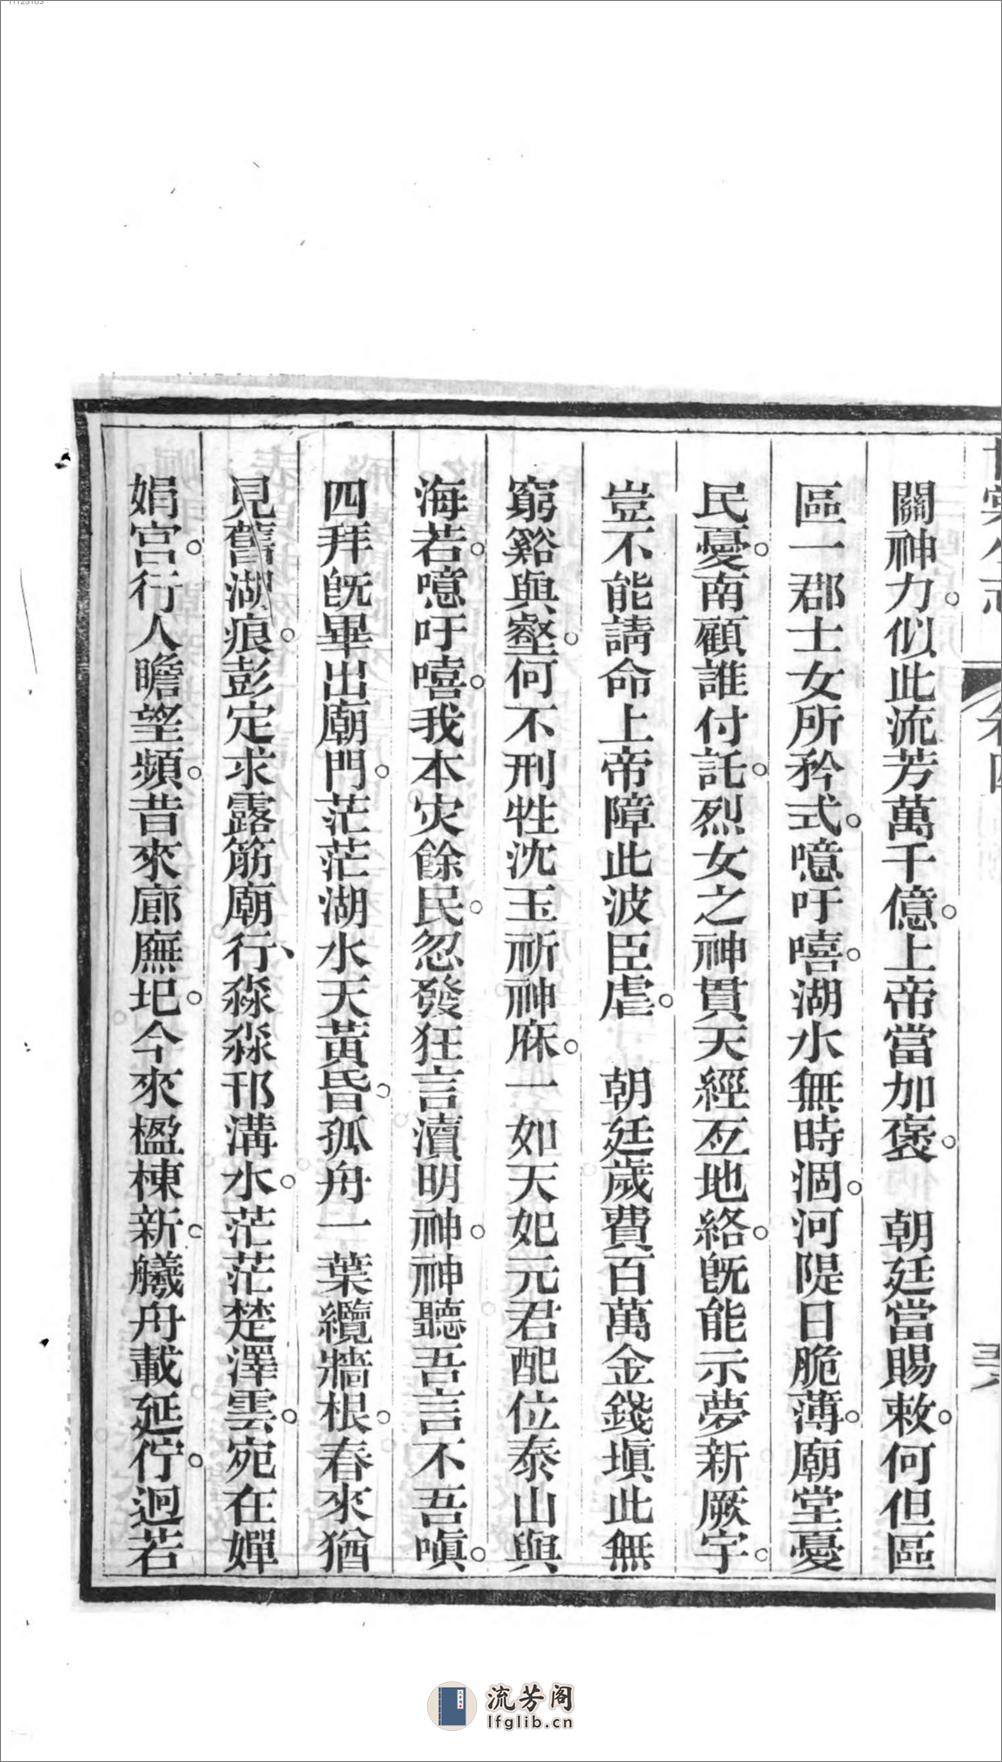 關神力。似此流芳萬千億。上帝當加褒。　朝廷當賜敕。何但區
區一郡士女所矜式。噫吁嘻。湖水無時涸。河隄日脆薄。廟堂憂
民憂。南顧誰付託。烈女之神貫天經亙地絡。旣能示夢新厥宇。
豈不能請命上帝障此波臣虐。　朝廷歲費百萬金錢塡此無
窮谿與壑。何不刑牲沈玉祈神庥。一如天妃元君配位泰山與
海若。噫吁嘻。我本灾餘民。忽發狂言瀆明神。神聽吾言不吾嗔。
四拜旣畢出廟門。茫茫湖水天黃昏。孤舟一葉纜牆根。春來猶
見舊湖痕。彭定求露筋廟行、淼淼邗溝水。茫茫楚澤雲。宛在嬋
娟宮。行人瞻望頻。昔來廊廡圯。今來楹棟新。艤舟載延佇。迴若
卷四
流芳阁
lfglib.cn
11125103